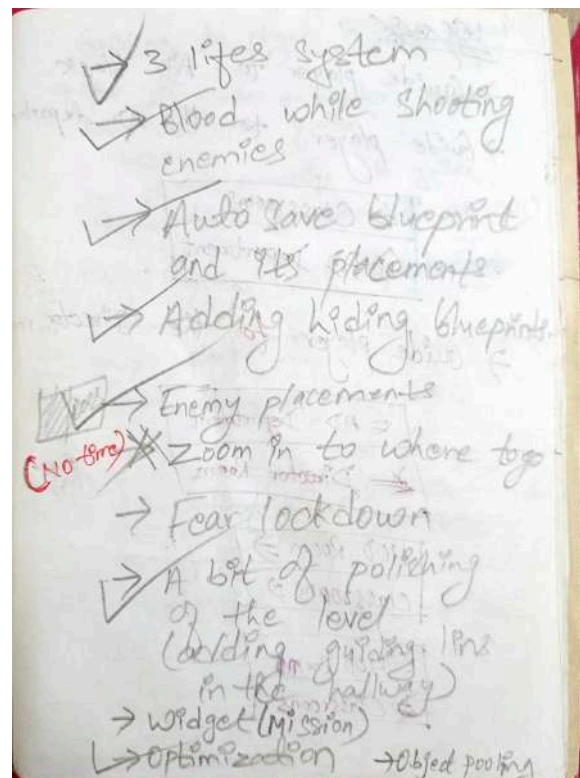 → 3 lifes system
→ Blood while shooting
enemies
→ Auto save blueprint
and its placements
→ Adding hiding blueprints
→ Enemy placements
(No time) → Zoom in to where to go
→ Fear lockdown
→ A bit of polishing
of the level
(adding guiding lins
in the hallway)
→ Widget (Mission)
→ Optimization → Object pooling